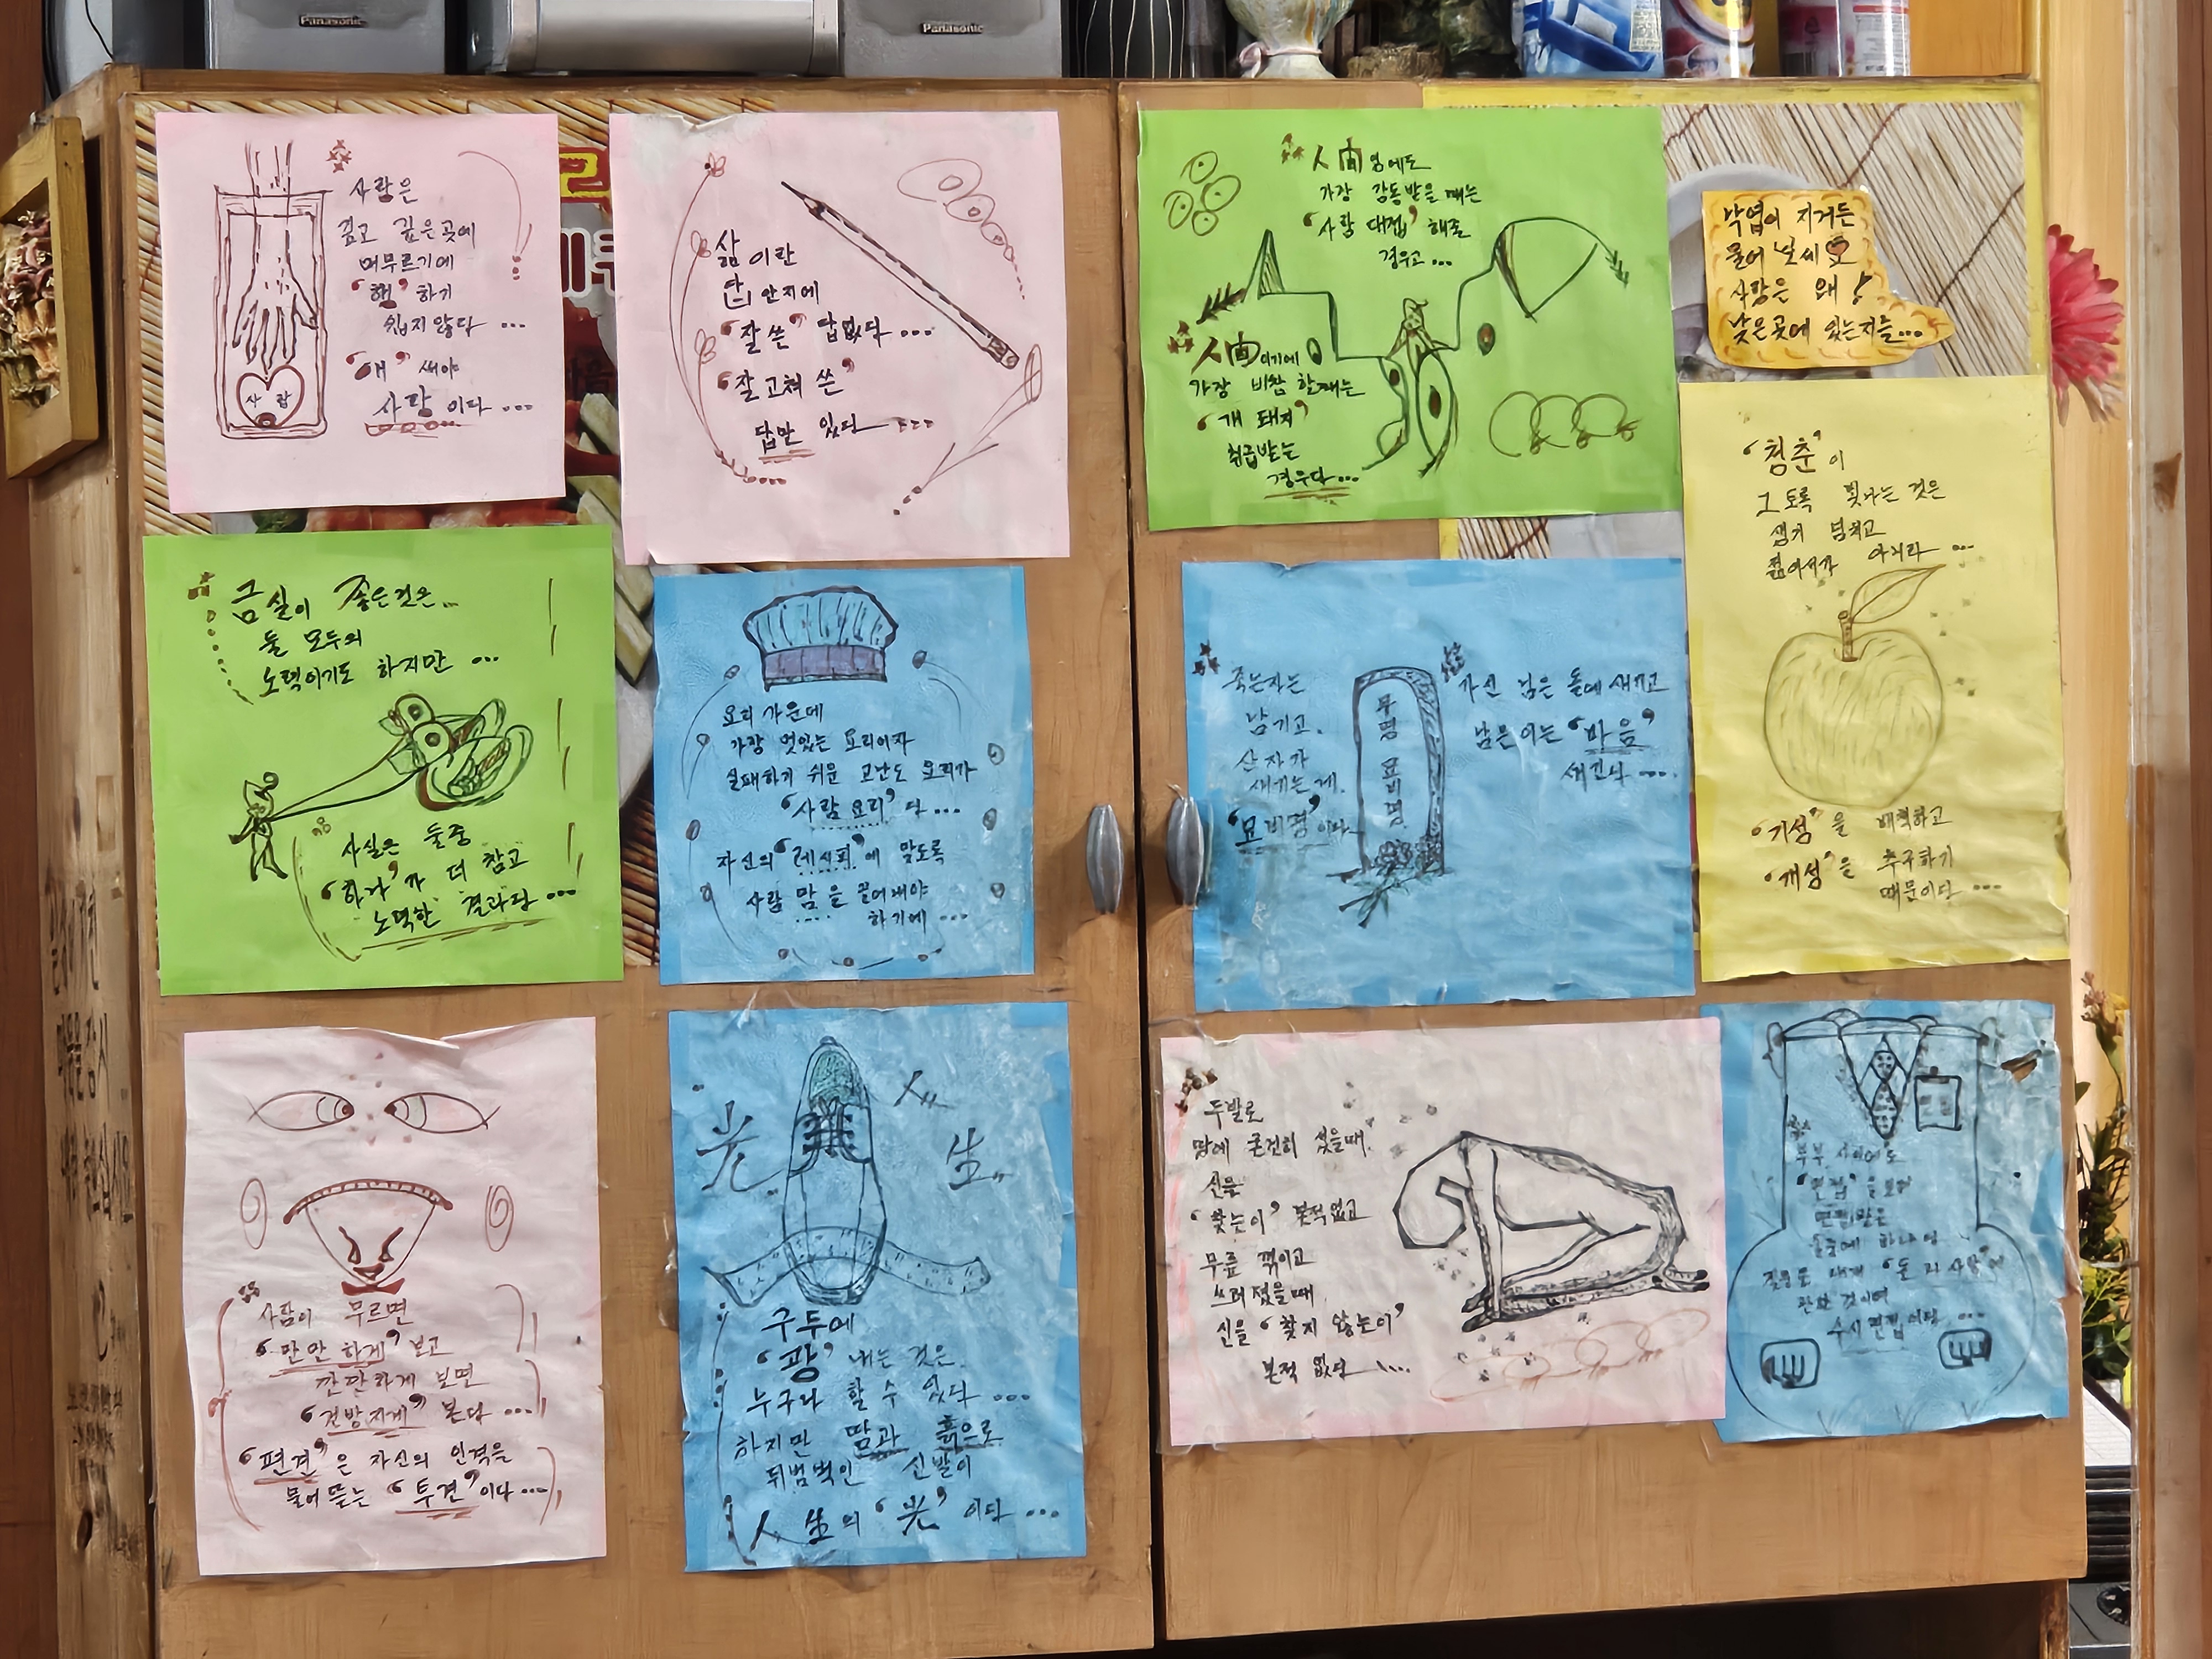 Panasonic
Panasonic
사람은
깊고 깊은곳에
머무르기에
'행'하기
쉽지않다 ...
'애'써야
사랑이다 ...
사랑
삶이란
답안지에
'잘쓴' 답없다 ...
'잘고쳐 쓴'
답만 있다 ...
人間 임에도
가장 감동받을때는
'사람 대접' 해준
경우고 ...
人間이기에
가장 비참할때는
'개 돼지'
취급받는
경우다 ...
낙엽이 지거든
물어 보세요
사랑은 왜
낮은곳에 있는지를 ...
'청춘'이
그토록 빛나는 것은
생기 넘치고
젊어서가 아니라 ...
'기성'을 배척하고
'개성'을 추구하기
때문이다 ...
금실이 좋은것은 ...
둘 모두의
노력이기도 하지만 ...
사실은 둘중
'하나'가 더 참고
노력한 결과다 ...
요리가운데
가장 멋있는 요리이자
실패하기 쉬운 고난도 요리가
'사람요리'다 ...
자신의 '레시피'에 맞도록
사람 맘을 끌어내야
하기에 ...
죽는자는
남기고,
산자가
새기는게,
'묘비명'이다
무명 묘비명
가신 님은 돌에새기고
남은이는 '마음'
새긴다 ...
사람이 무르면
'만만하게' 보고
깐깐하게 보면
'건방지게' 본다 ...
'편견'은 자신의 인격을
물어뜯는 '투견'이다 ...
光
人
生
구두에
'광' 내는것은
누구나 할 수 있다 ...
하지만 땀과 흙으로
뒤범벅인 신발이
人生의 '光'이다 ...
두발로
땅에 굳건히 섰을때,
신을
'찾는이' 본적없고
무릎 꺾이고
쓰러졌을때,
신을 '찾지 않는이'
본적 없다 ...
부부 사이에도
'면접'을 보며
면접관은
둘중에 하나며
질문은 대게 '돈과 사랑'에
관한 것이며
수시면접이다 ...